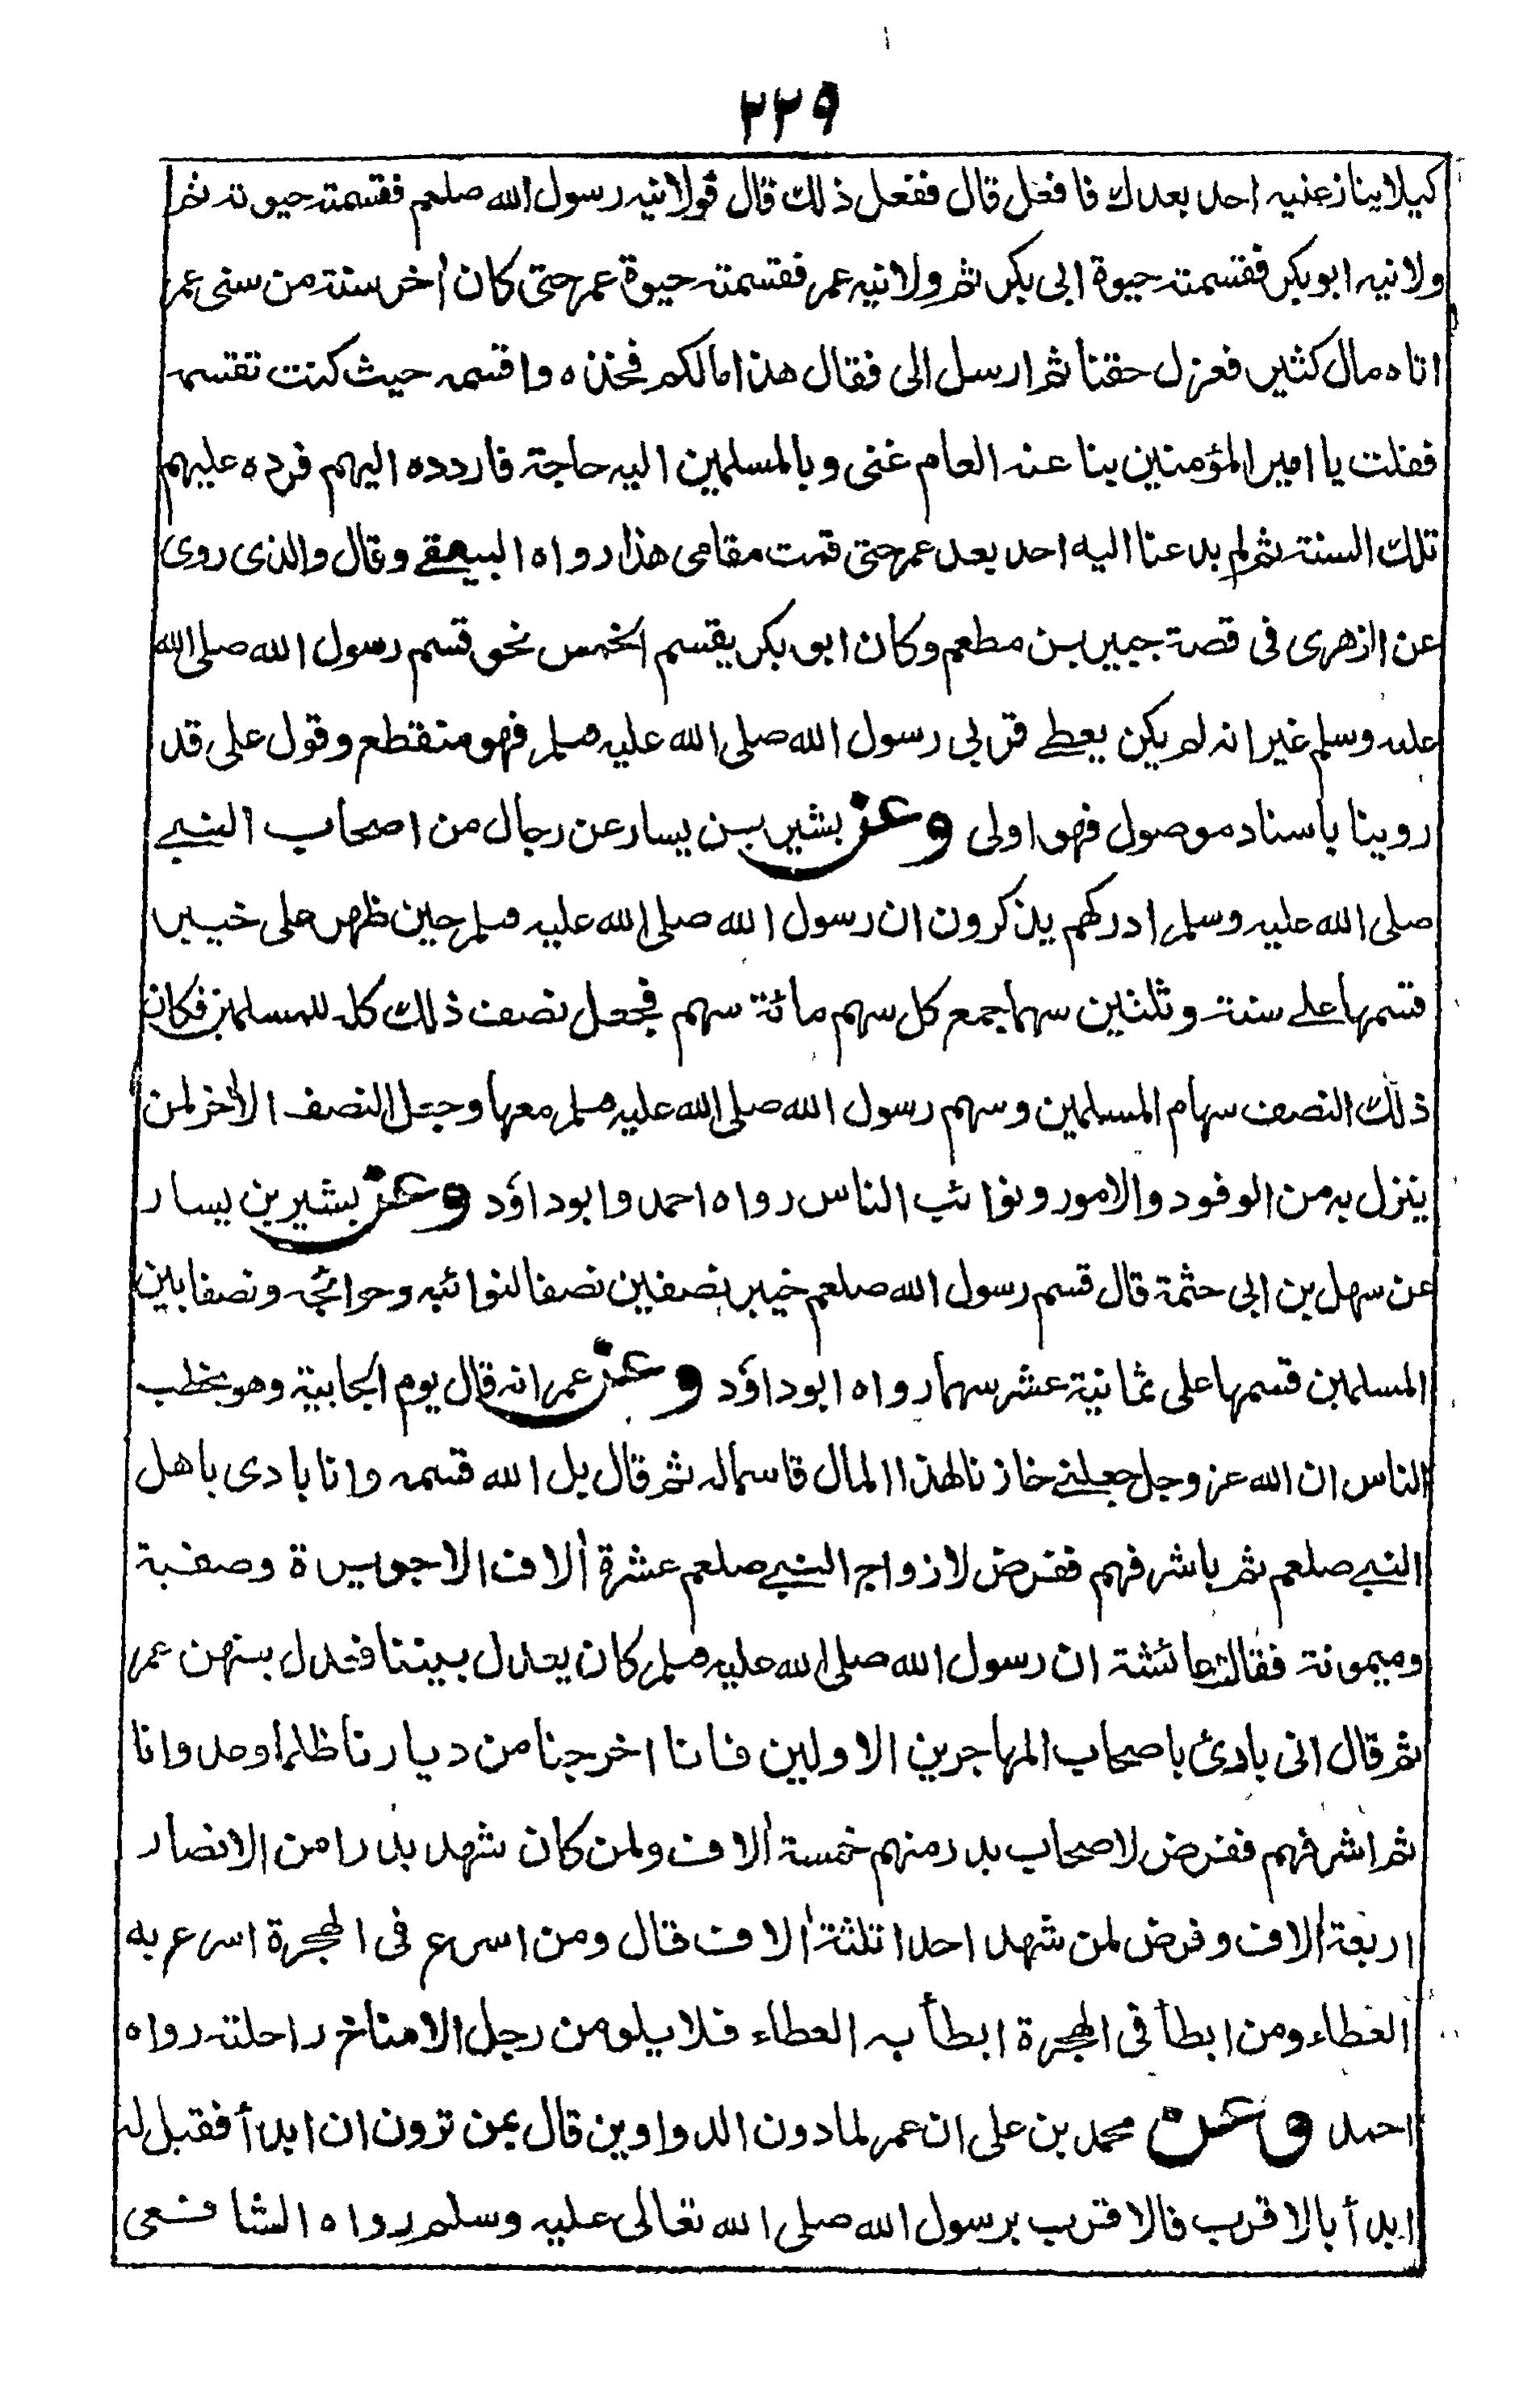 ٢٢٩
كيلا ينازعنيه احد بعدك فافعل قال ففعل ذلك قال فولانيه رسول الله صلعم فقسمته حيوته ثم
ولانيه ابوبكر فقسمته حيوة ابى بكر ثم ولانيه عمر فقسمته حيوة عمر حتى كان أخر سنة من سنى عمر
اتاه مال كثير فعزل حقنا ثم ارسل الى فقال هذا مالكم فخذه واقسمه حيث كنت تقسمه
فقلت يا امير المؤمنين بنا عنه العام غنى وبالمسلمين اليه حاجة فاردده اليهم فرده عليهم
تلك السنة ثم لم يدعنا اليه احد بعد عمر حتى قمت مقامى هذا رواه البيهقے وقال والذى روى
عن الزهرى فى قصة جبير بن مطعم وكان ابو بكر يقسم الخمس نحو قسم رسول الله صلى الله
عليه وسلم غير انه لم يكن يعطے قربى رسول الله صلى الله عليه وسلم فهو منقطع وقول على قد
روينا باسناد موصول فهو اولى وعن بشير بن يسار عن رجال من اصحاب النبے
صلى الله عليه وسلم ادركهم يذكرون ان رسول الله صلى الله عليه وسلم حين ظهر على خيبر
قسمها علے ستة وثلثين سهما جمع كل سهم مائة سهم فجعل نصف ذلك كله للمسلمين فكان
ذلك النصف سهام المسلمين وسهم رسول الله صلى الله عليه وسلم معها وجعل النصف الأخر لمن
ينزل به من الوفود والامور ونوائب الناس رواه احمد وابو داؤد وعن بشير بن يسار
عن سهل بن ابى حثمة قال قسم رسول الله صلعم خيبر نصفين نصفا لنوائبه وحوائجه ونصفا بين
المسلمين قسمها على ثمانية عشر سهما رواه ابو داؤد وعن عمر انه قال يوم الجابية وهو يخطب
الناس ان الله عز وجل جعلنے خازنا لهذا المال قاسما له ثم قال بل الله قسمه وانا بادى باهل
النبے صلعم ثم باشرفهم ففرض لازواج النبے صلعم عشرة ألاف الا جويرة وصفية
وميمونة فقالت عائشة ان رسول الله صلى الله عليه وسلم كان يعدل بيننا فعدل بينهن عمر
ثم قال انى بادئ باصحاب المهاجرين الاولين فانا اخرجنا من ديارنا ظلما وعدوانا
ثم اشرفهم ففرض لاصحاب بدر منهم خمسة ألاف ولمن كان شهد بدرا من الانصار
اربعة ألاف وفرض لمن شهد احدا ثلثة ألاف قال ومن اسرع فى الهجرة اسرع به
العطاء ومن ابطأ فى الهجرة ابطأ به العطاء فلا يلومن رجل الا مناخ راحلته رواه
احمد وعن محمد بن على ان عمر لما دون الدواوين قال بمن ترون ان ابدأ فقيل له
ابدأ بالاقرب فالاقرب برسول الله صلى الله تعالى عليه وسلم رواه الشافعى